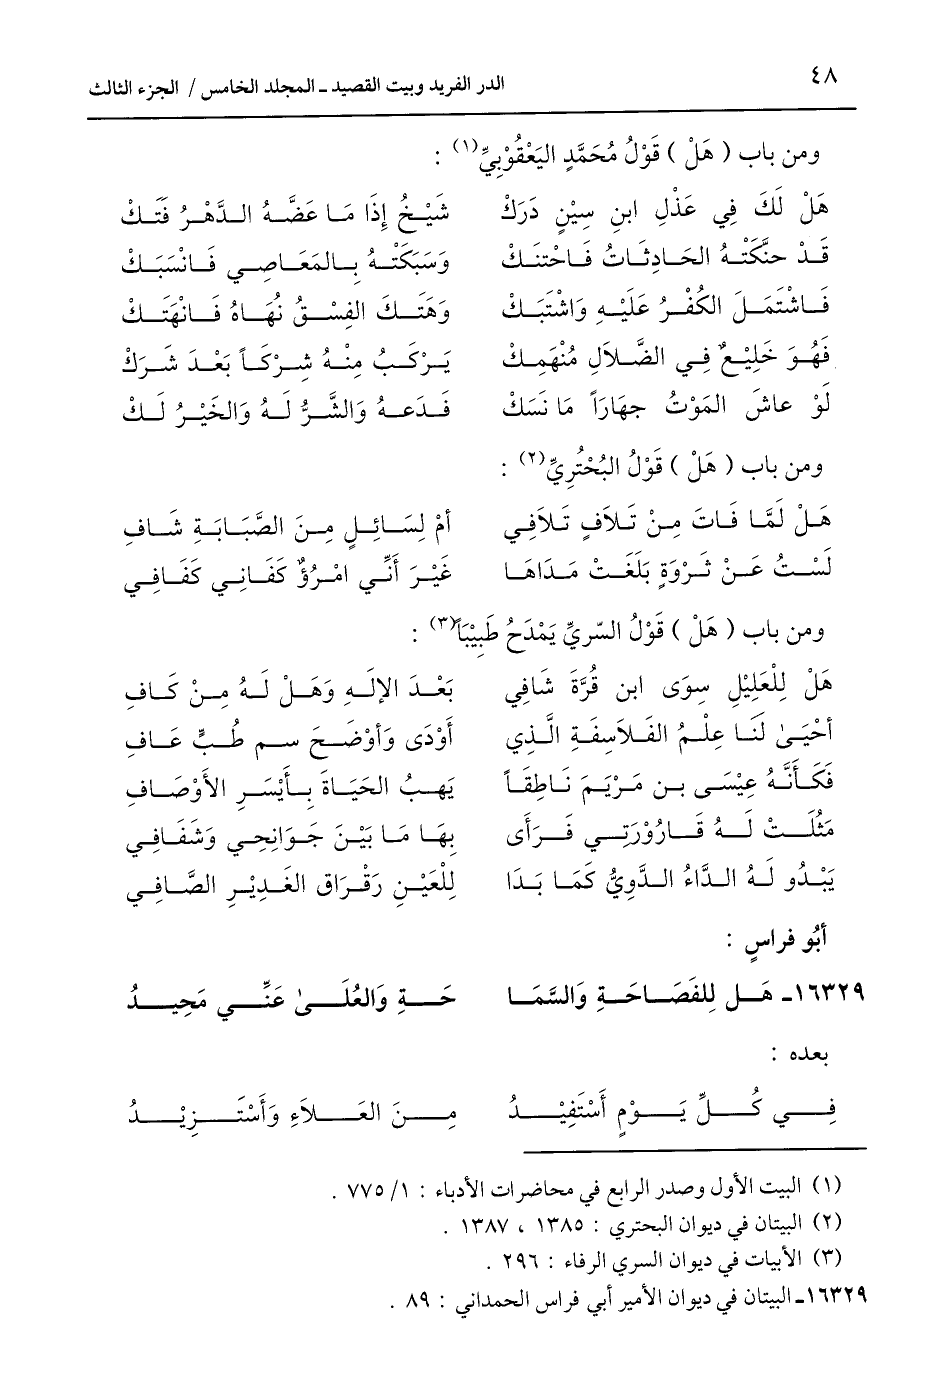 ٤٨
الدر الفريد وبيت القصيد ـ المجلد الخامس / الجزء الثالث
ومن باب ( هَلْ ) قَوْلُ مُحَمَّدٍ اليَعْقُوبِيِّ(١) :
هَلْ لَكَ فِي عَذْلِ ابنِ سِيْنٍ دَرَكْ شَيْخٌ إِذَا مَا عَضَّهُ الدَّهْرُ فَتَكْ
قَدْ حنَّكَتْهُ الحَادِثَاتُ فَاحْتَنَكْ وَسَبَكَتْهُ بِالمَعَاصِي فَانْسَبَكْ
فَاشْتَمَلَ الكُفْرُ عَلَيْهِ وَاشْتَبَكْ وَهَتَكَ الفِسْقُ نُهَاهُ فَانْهَتَكْ
فَهُوَ خَلِيْعٌ فِي الضَّلَالِ مُنْهَمِكْ يَرْكَبُ مِنْهُ شِرْكَاً بَعْدَ شَرَكْ
لَوْ عَاشَ المَوْتُ جهَارَاً مَا نَسَكْ فَدَعهُ وَالشَّرُّ لَهُ وَالخَيْرُ لَكْ
ومن باب ( هَلْ ) قَوْلُ البُحْتُرِيِّ(٢) :
هَلْ لَمَّا فَاتَ مِنْ تَلَافٍ تَلَافِي أَمْ لِسَائِلٍ مِنَ الصَّبَابَةِ شَافِ
لَسْتُ عَنْ ثَرْوَةٍ بَلَغَتْ مَدَاهَا غَيْرَ أَنِّي امْرُؤٌ كَفَانِي كَفَافِي
ومن باب ( هَلْ ) قَوْلُ السّرِيِّ يَمْدَحُ طَبِيْبَاً(٣) :
هَلْ لِلْعَلِيْلِ سِوَى ابنِ قُرَّةَ شَافِي بَعْدَ الإِلَهِ وَهَلْ لَهُ مِنْ كَافِ
أَحْيَى لَنَا عِلْمُ الفَلَاسِفَةِ الَّذِي أَوْدَى وَأَوْضَحَ سم طُبٍّ عَافِ
فَكَأَنَّهُ عِيْسَى بن مَرْيَمَ نَاطِقَاً يَهبُ الحَيَاةَ بِأَيْسَرِ الأَوْصَافِ
مَثُلَتْ لَهُ قَارُوْرَتِي فَرَأَى بِهَا مَا بَيْنَ جَوَانِحِي وَشَفَافِي
يَبْدُو لَهُ الدَّاءُ الدَّوِيُّ كَمَا بَدَا لِلْعَيْنِ رَقْرَاق الغَدِيْرِ الصَّافِي
أَبُو فراسٍ :
١٦٣٢٩ـ هَـلْ لِلفَصَاحَةِ وَالسَّمَا حَةِ وَالعُلَى عَنِّي مَحِيدُ
بعده :
فِي كُلِّ يَوْمٍ أَسْتَفِيْدُ مِنَ العَلَاءِ وَأَسْتَزِيْدُ
(١) البيت الأول وصدر الرابع في محاضرات الأدباء : ١/ ٧٧٥ .
(٢) البيتان في ديوان البحتري : ١٣٨٥ ، ١٣٨٧ .
(٣) الأبيات في ديوان السري الرفاء : ٢٩٦ .
١٦٣٢٩ـ البيتان في ديوان الأمير أبي فراس الحمداني : ٨٩ .